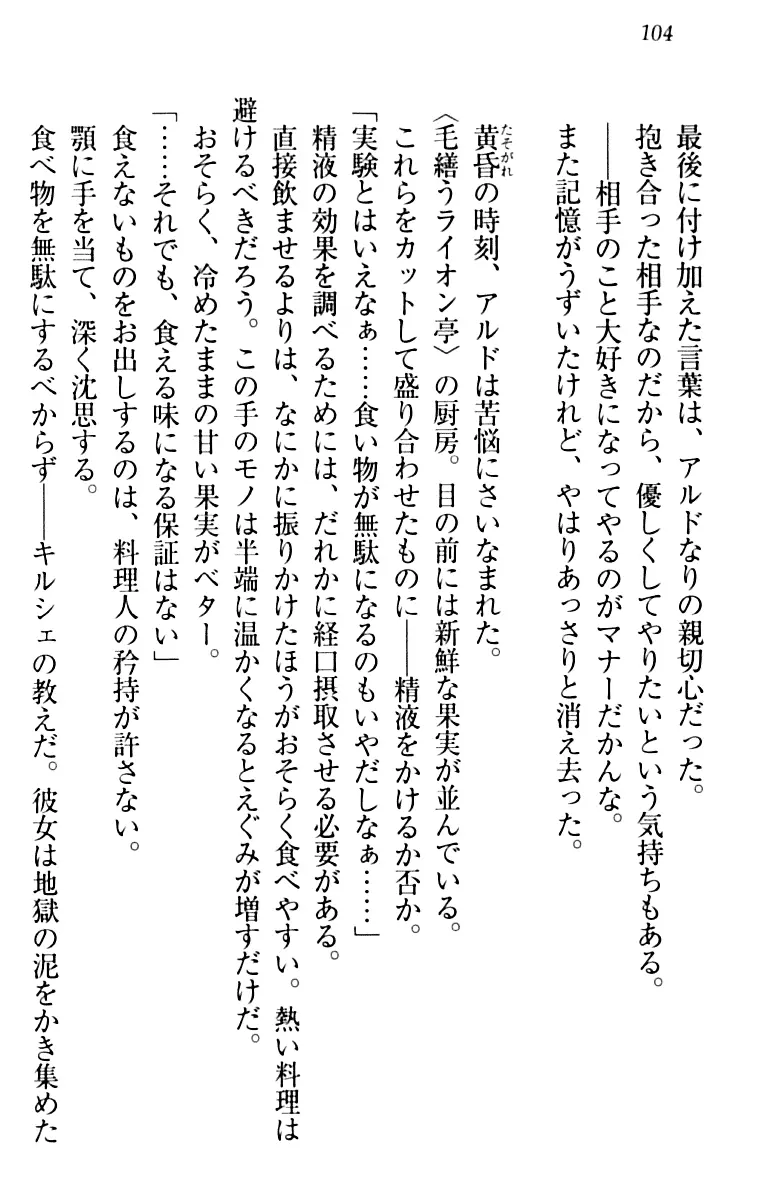 104
最後に付け加えた言葉は、アルドなりの親切心だった。
抱き合った相手なのだから、優しくしてやりたいという気持ちもある。
――相手のこと大好きになってやるのがマナーだかんな。
また記憶がうずいたけれど、やはりあっさりと消え去った。
黄昏の時刻、アルドは苦悩にさいなまれた。
たそがれ
〈毛繕うライオン亭〉の厨房。目の前には新鮮な果実が並んでいる。
これらをカットして盛り合わせたものに――精液をかけるか否か。
「実験とはいえなぁ……食い物が無駄になるのもいやだしなぁ……」
精液の効果を調べるためには、だれかに経口摂取させる必要がある。
直接飲ませるよりは、なにかに振りかけたほうがおそらく食べやすい。熱い料理は
避けるべきだろう。この手のモノは半端に温かくなるとえぐみが増すだけだ。
おそらく、冷めたままの甘い果実がベター。
「……それでも、食える味になる保証はない」
食えないものをお出しするのは、料理人の矜持が許さない。
顎に手を当て、深く沈思する。
食べ物を無駄にするべからず――キルシェの教えだ。彼女は地獄の泥をかき集めた